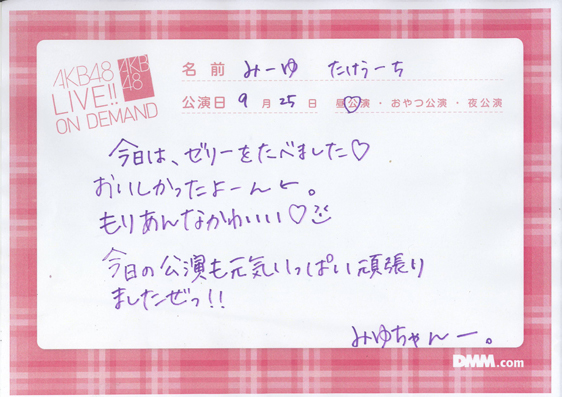 AKB48
LIVE!!
ON DEMAND
AKB
48
名前 みーゆ たけうーち
公演日 9月25日 昼公演・おやつ公演・夜公演
今日は、ゼリーをたべました♡
おいしかったよーんし。
もりあんなかわいい♡
今日の公演も元気いっぱい頑張り
ましたぜっ!!
みゆちゃんー。
DMM.com